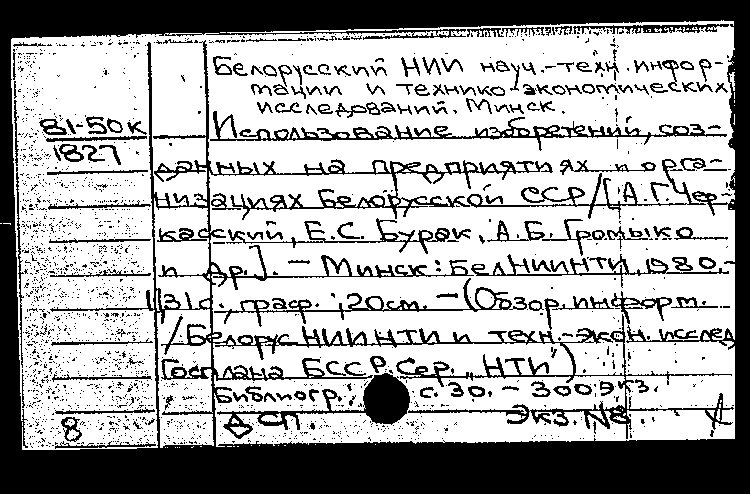 Белорусский НИИ науч.-техн. инфор-
мации и технико-экономических
исследований. Минск.
81-50к
1827
Использование изобретений, соз-
данных на предприятиях и орга-
низациях Белорусской ССР/[А.Г. Чер-
касский, Е.С. Бурак, А.Б. Громыко
и др.]. - Минск: БелНИИНТИ, 1980.-
31 с., граф.; 20см. - (Обзор. информ.
/Белорус НИИНТИ и техн.-экон. исслед
Госплана БССР. Сер. „НТИ").
Библиогр.: с. 30. - 300 экз.
8 ДСП. Экз. N8.